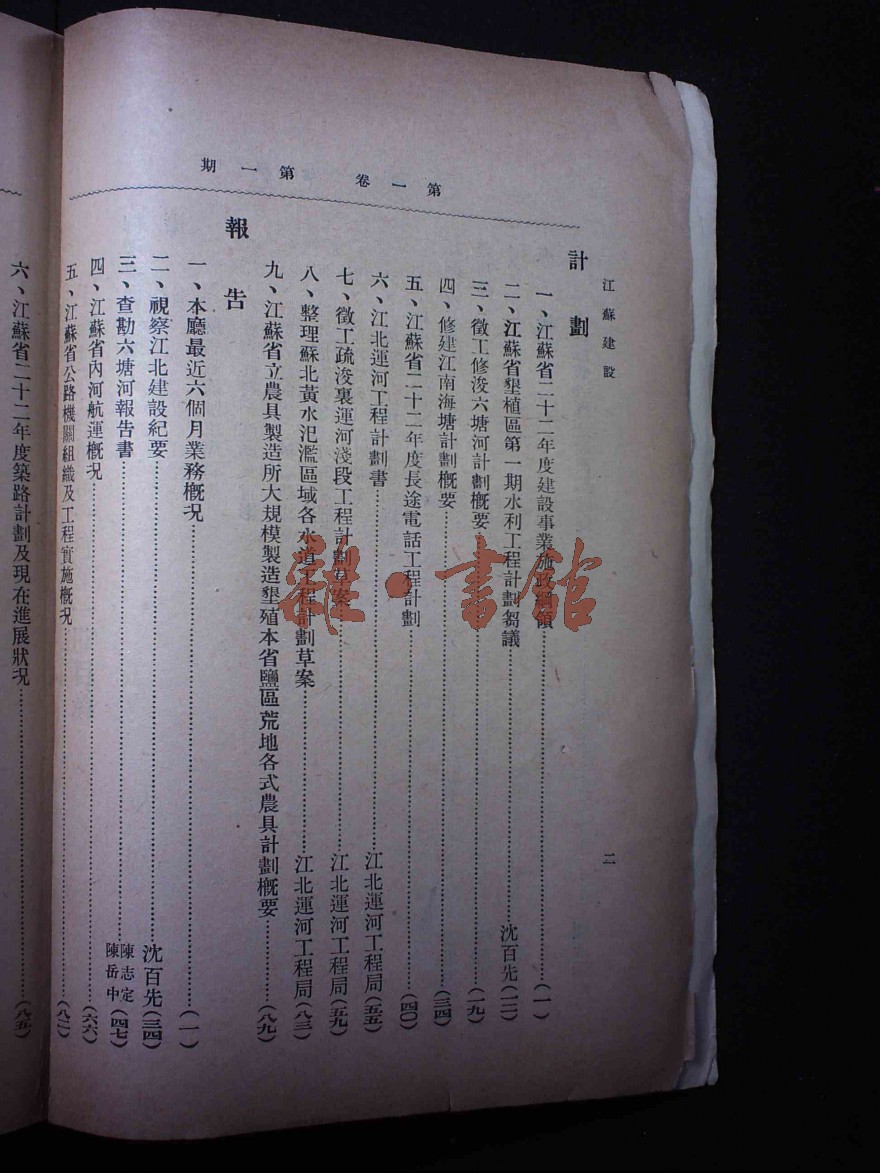 江蘇建設
二
第一卷 第一期
計劃
一、江蘇省二十二年度建設事業施政綱領(一)
二、江蘇省墾植區第一期水利工程計劃芻議 沈百先(一二)
三、徵工修浚六塘河計劃概要(一九)
四、修建江南海塘計劃概要(三四)
五、江蘇省二十二年度長途電話工程計劃(四〇)
六、江北運河工程計劃書 江北運河工程局(五五)
七、徵工疏浚裏運河淺段工程計劃草案 江北運河工程局(五九)
八、整理蘇北黃水氾濫區域各水道工程計劃草案 江北運河工程局(八三)
九、江蘇省立農具製造所大規模製造墾殖本省鹽區荒地各式農具計劃概要(八九)
報告
一、本廳最近六個月業務概況(一)
二、視察江北建設紀要 沈百先(三四)
三、查勘六塘河報告書 陳志定 陳岳中(四七)
四、江蘇省內河航運概況(六六)
五、江蘇省公路機關組織及工程實施概況(八二)
六、江蘇省二十二年度築路計劃及現在進展狀況(八五)
雜·書館